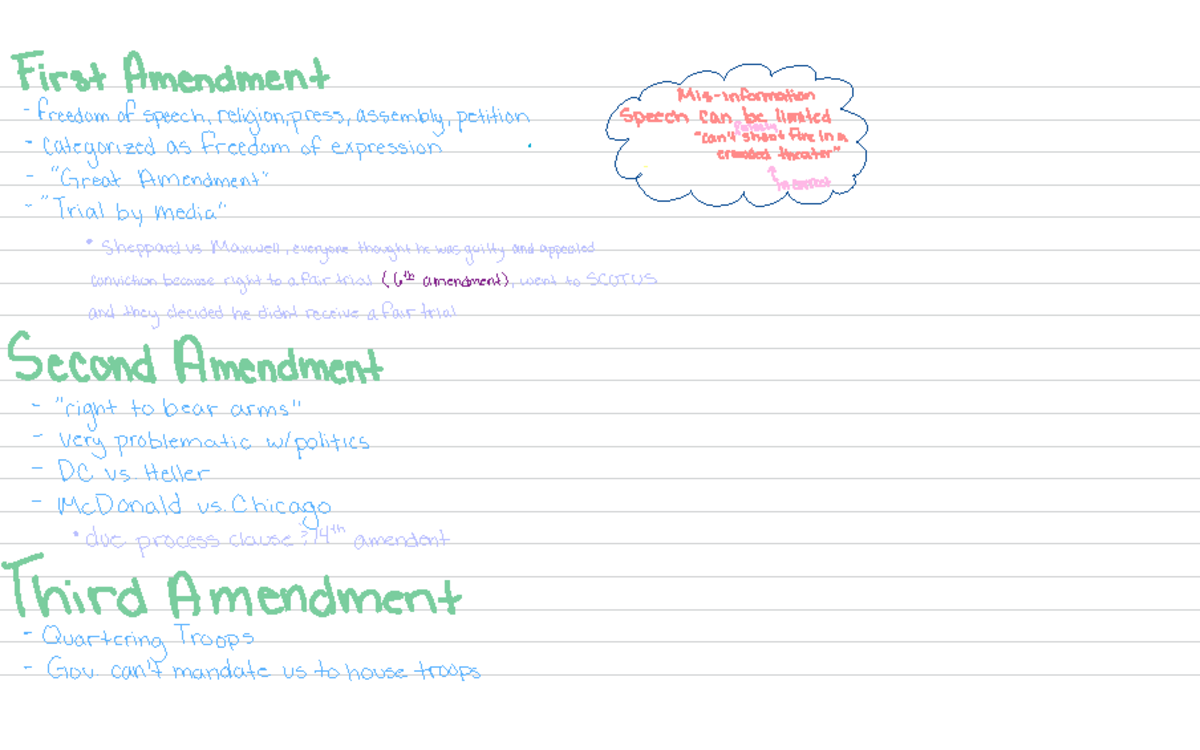 First Amendment
- Freedom of speech, religion, press, assembly, petition
- Categorized as freedom of expression
- "Great Amendment"
- "Trial by media"
• Sheppard vs Maxwell, everyone thought he was guilty and appealed
conviction because right to a fair trial (6th amendment), went to SCOTUS
and they decided he didnt receive a fair trial
Mis-information
Speech can be limited
falsely
"can't shout fire in a
crowded theater"
incorrect
Second Amendment
- "right to bear arms"
- very problematic w/politics
- DC vs. Heller
- McDonald vs. Chicago
• due process clause 14th amendent
Third Amendment
- Quartering Troops
- Gov. can't mandate us to house troops